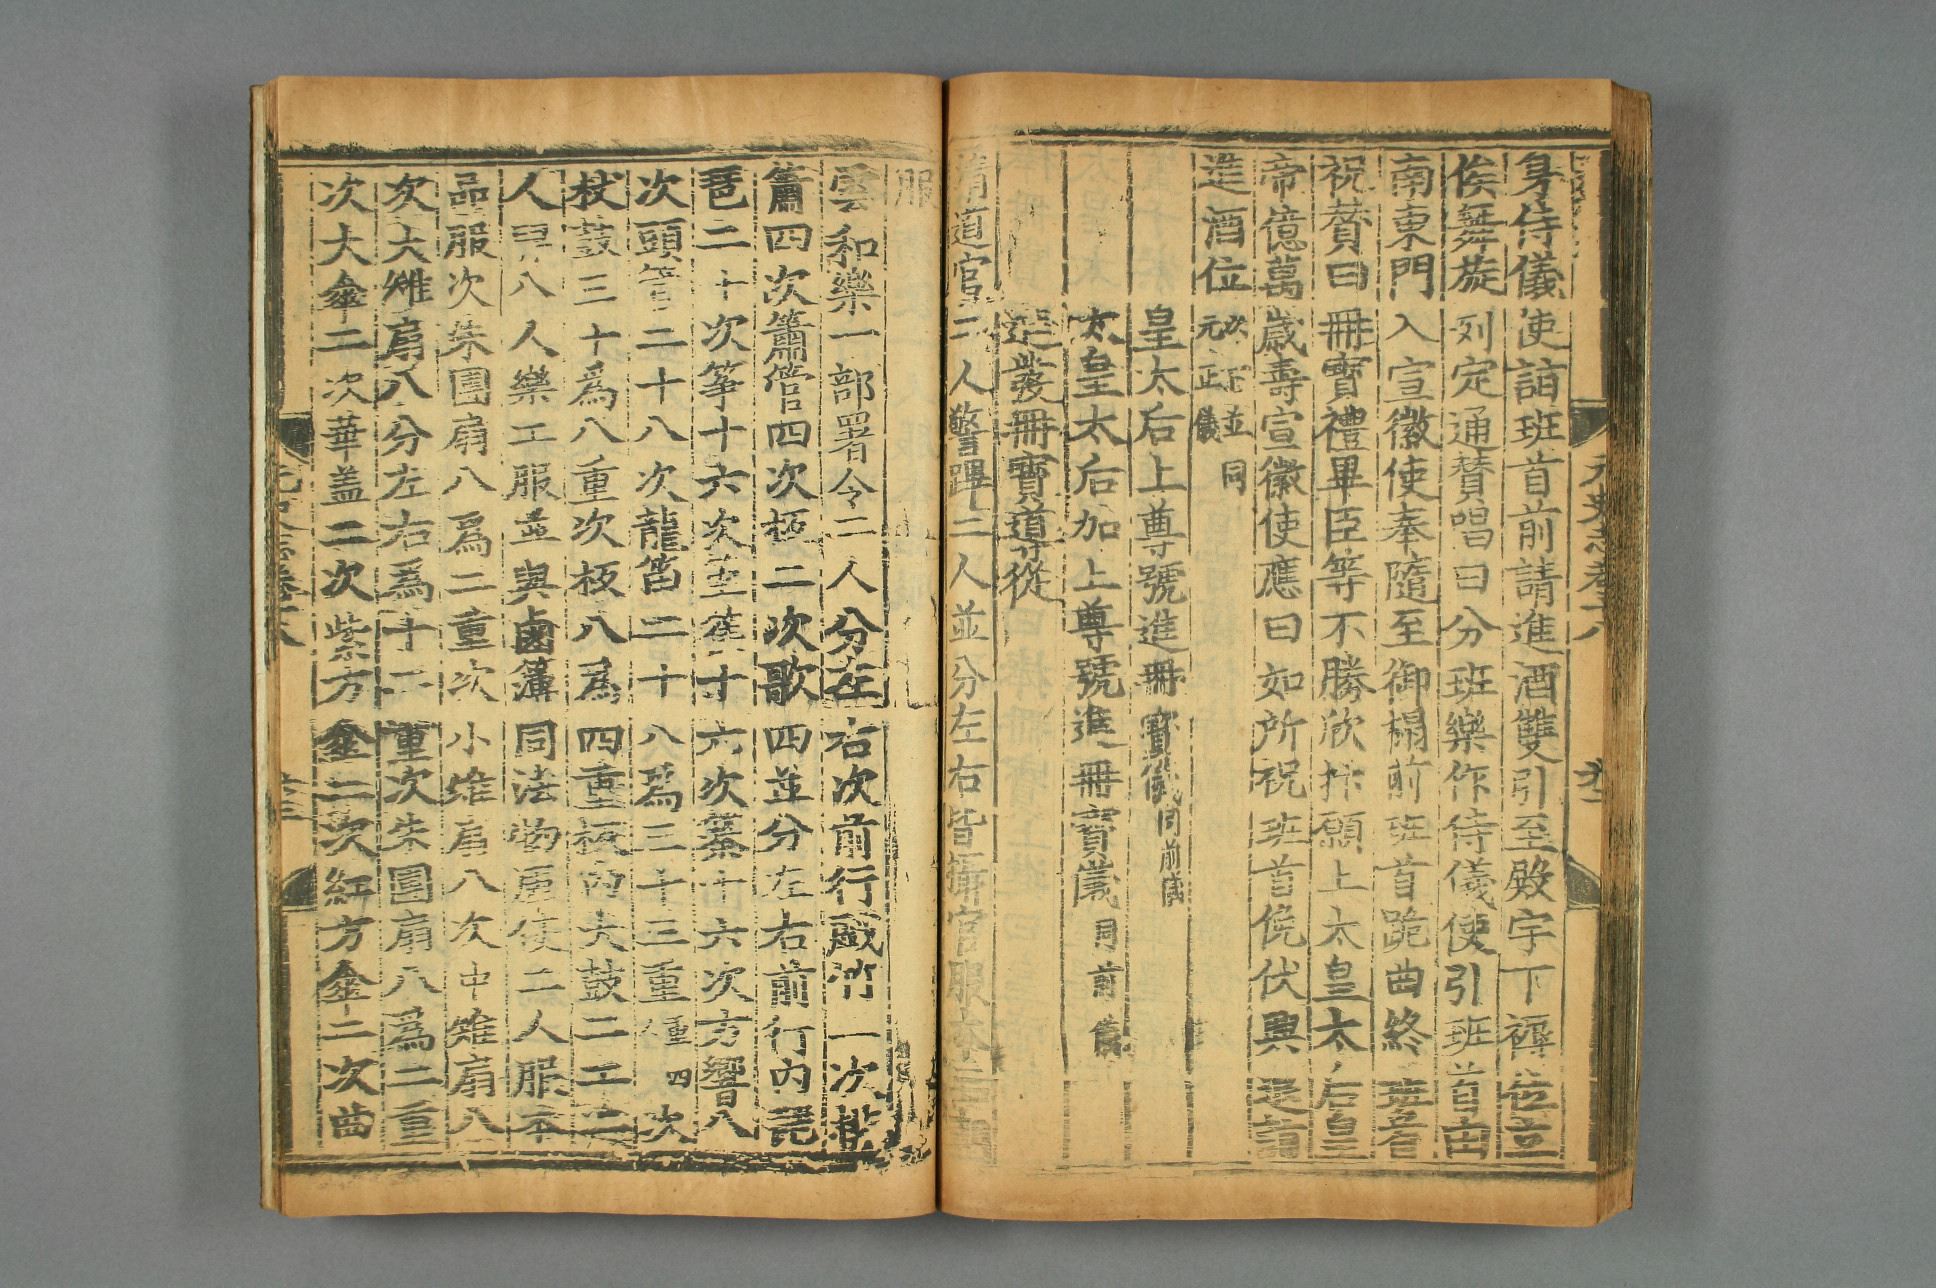 身侍儀使詣班首前請進酒雙引至殿宇下褥位立
俟舞旋列定通贊唱曰分班樂作侍儀使引班首由
南東門入宣徽使奉隨至御榻前班首跪曲終班首
祝贊曰冊寶禮畢臣等不勝欣抃願上太皇太后皇
帝億萬歲壽宣徽使應曰如所祝班首俛伏興退詣
造酒位 並同元正儀
皇太后上尊號進冊寶儀同前儀
太皇太后加上尊號進冊寶儀同前儀
冊寶導從
清道官二人警蹕二人並分左右皆攝官服本
服
雲和樂一部署令二人分左右次前行戲竹二次
簫四次籥管四次板二次歌四並分左右前行內琵
琶二十次箏十六次箜篌十六次蓁十六次方響八
次頭管二十八次龍笛二十八為三十三重 次
杖鼓三十為八重次板八為四重板內大鼓二工二
人 八人樂工服並與鹵簿同法物庫使二人服本
品服次朱團扇八為二重次小雉扇八次中雉扇八
次大雉扇八分左右為十二重次朱團扇八為二重
次大傘二次華蓋二次紫方傘二次紅方傘二次曲
元史志卷十八